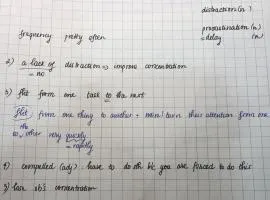 distraction (n)
procrastination (n)
= delay (n)
frequency pretty often
2) a lack of distraction => improve concentration
= no
3) flit from one task to the next
flit from one thing to another + mean: turn their attention from one
th to other very quickly
= rapidly
4) compelled (adj) : have to do sth bc you are forced to do this
5) lose sb's concentration